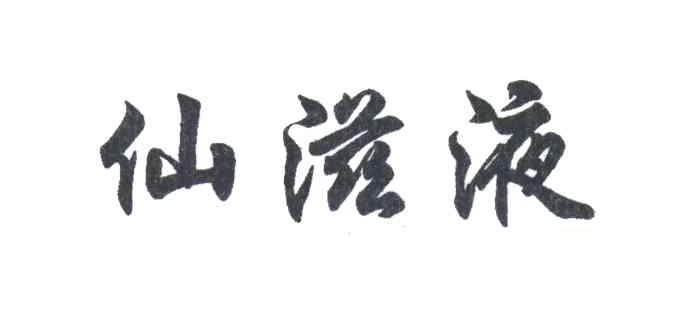 仙滋液